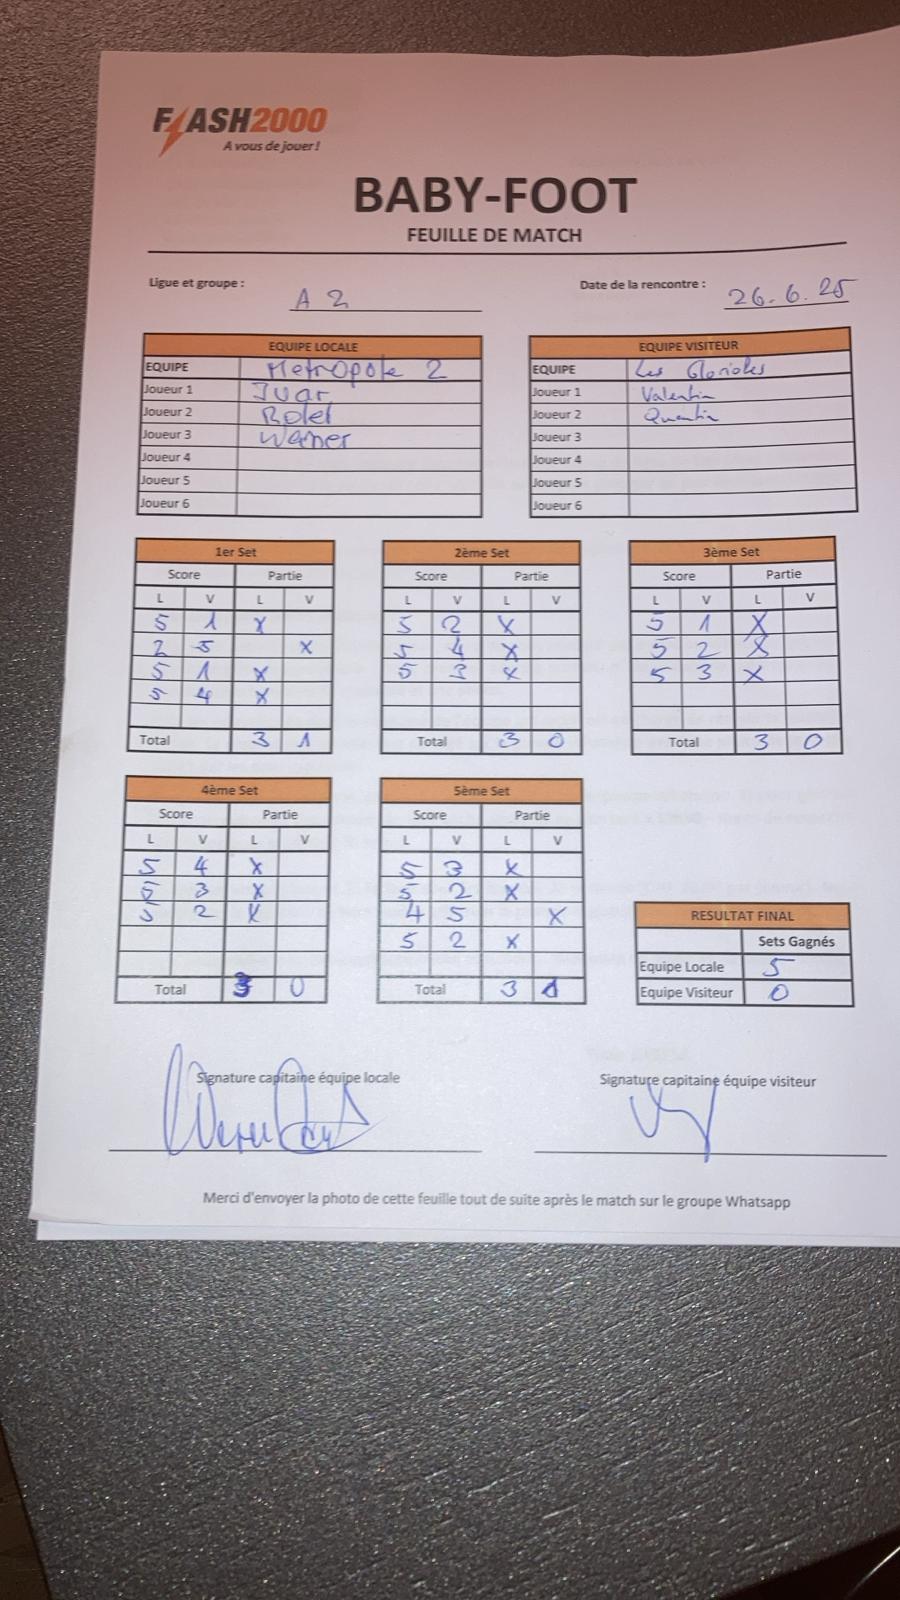 FLASH2000
A vous de jouer !
BABY-FOOT
FEUILLE DE MATCH
Ligue et groupe : A 2 Date de la rencontre : 26.6.25
EQUIPE LOCALE
EQUIPE Metropole 2
Joueur 1 Ivar
Joueur 2 Rolet
Joueur 3 Werner
Joueur 4
Joueur 5
Joueur 6
EQUIPE VISITEUR
EQUIPE Les
Joueur 1 Valentin
Joueur 2 Quentin
Joueur 3
Joueur 4
Joueur 5
Joueur 6
1er Set
Score Partie
L V L V
5 1 X
2 5 X
5 1 X
5 4 X
Total 3 1
2ème Set
Score Partie
L V L V
5 2 X
5 4 X
5 3 X
Total 3 0
3ème Set
Score Partie
L V L V
5 1 X
5 2 X
5 3 X
Total 3 0
4ème Set
Score Partie
L V L V
5 4 X
5 3 X
5 2 X
Total 3 0
5ème Set
Score Partie
L V L V
5 3 X
5 2 X
4 5 X
5 2 X
Total 3 1
RESULTAT FINAL
Sets Gagnés
Equipe Locale 5
Equipe Visiteur 0
Signature capitaine équipe locale
Signature capitaine équipe visiteur
Merci d'envoyer la photo de cette feuille tout de suite après le match sur le groupe Whatsapp